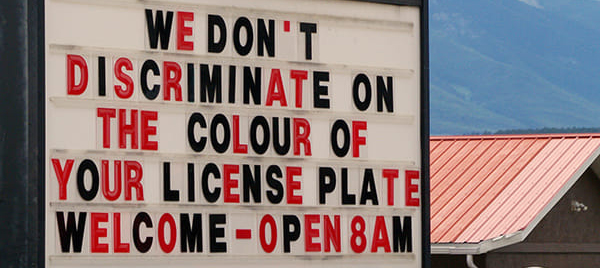 WE DON'T
DISCRIMINATE ON
THE COLOUR OF
YOUR LICENSE PLATE
WELCOME-OPEN 8AM